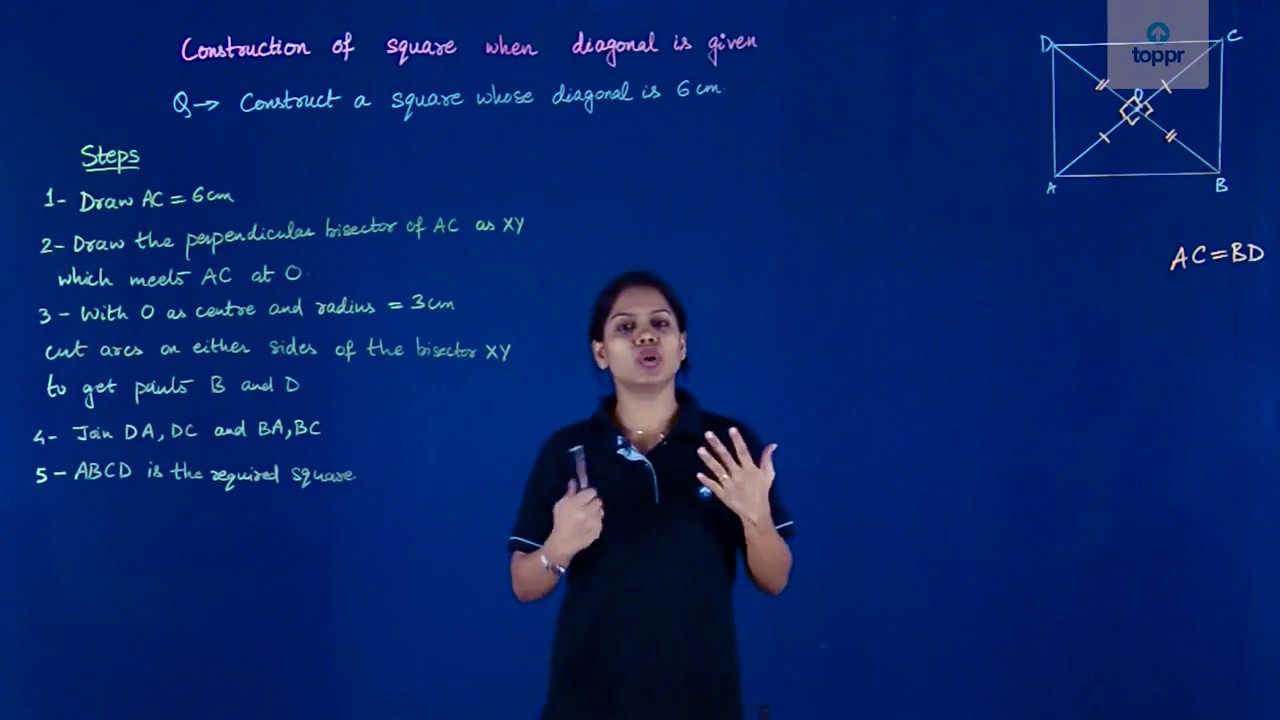 Construction of square when diagonal is given
Q→ Construct a square whose diagonal is 6cm.
Steps
1- Draw AC = 6cm
2- Draw the perpendicular bisector of AC as XY
which meets AC at O.
3 - With O as centre and radius = 3cm
cut arcs on either sides of the bisector XY
to get points B and D
4- Join DA, DC and BA, BC
5 - ABCD is the required square.
D
C
toppr
O
A
B
AC=BD